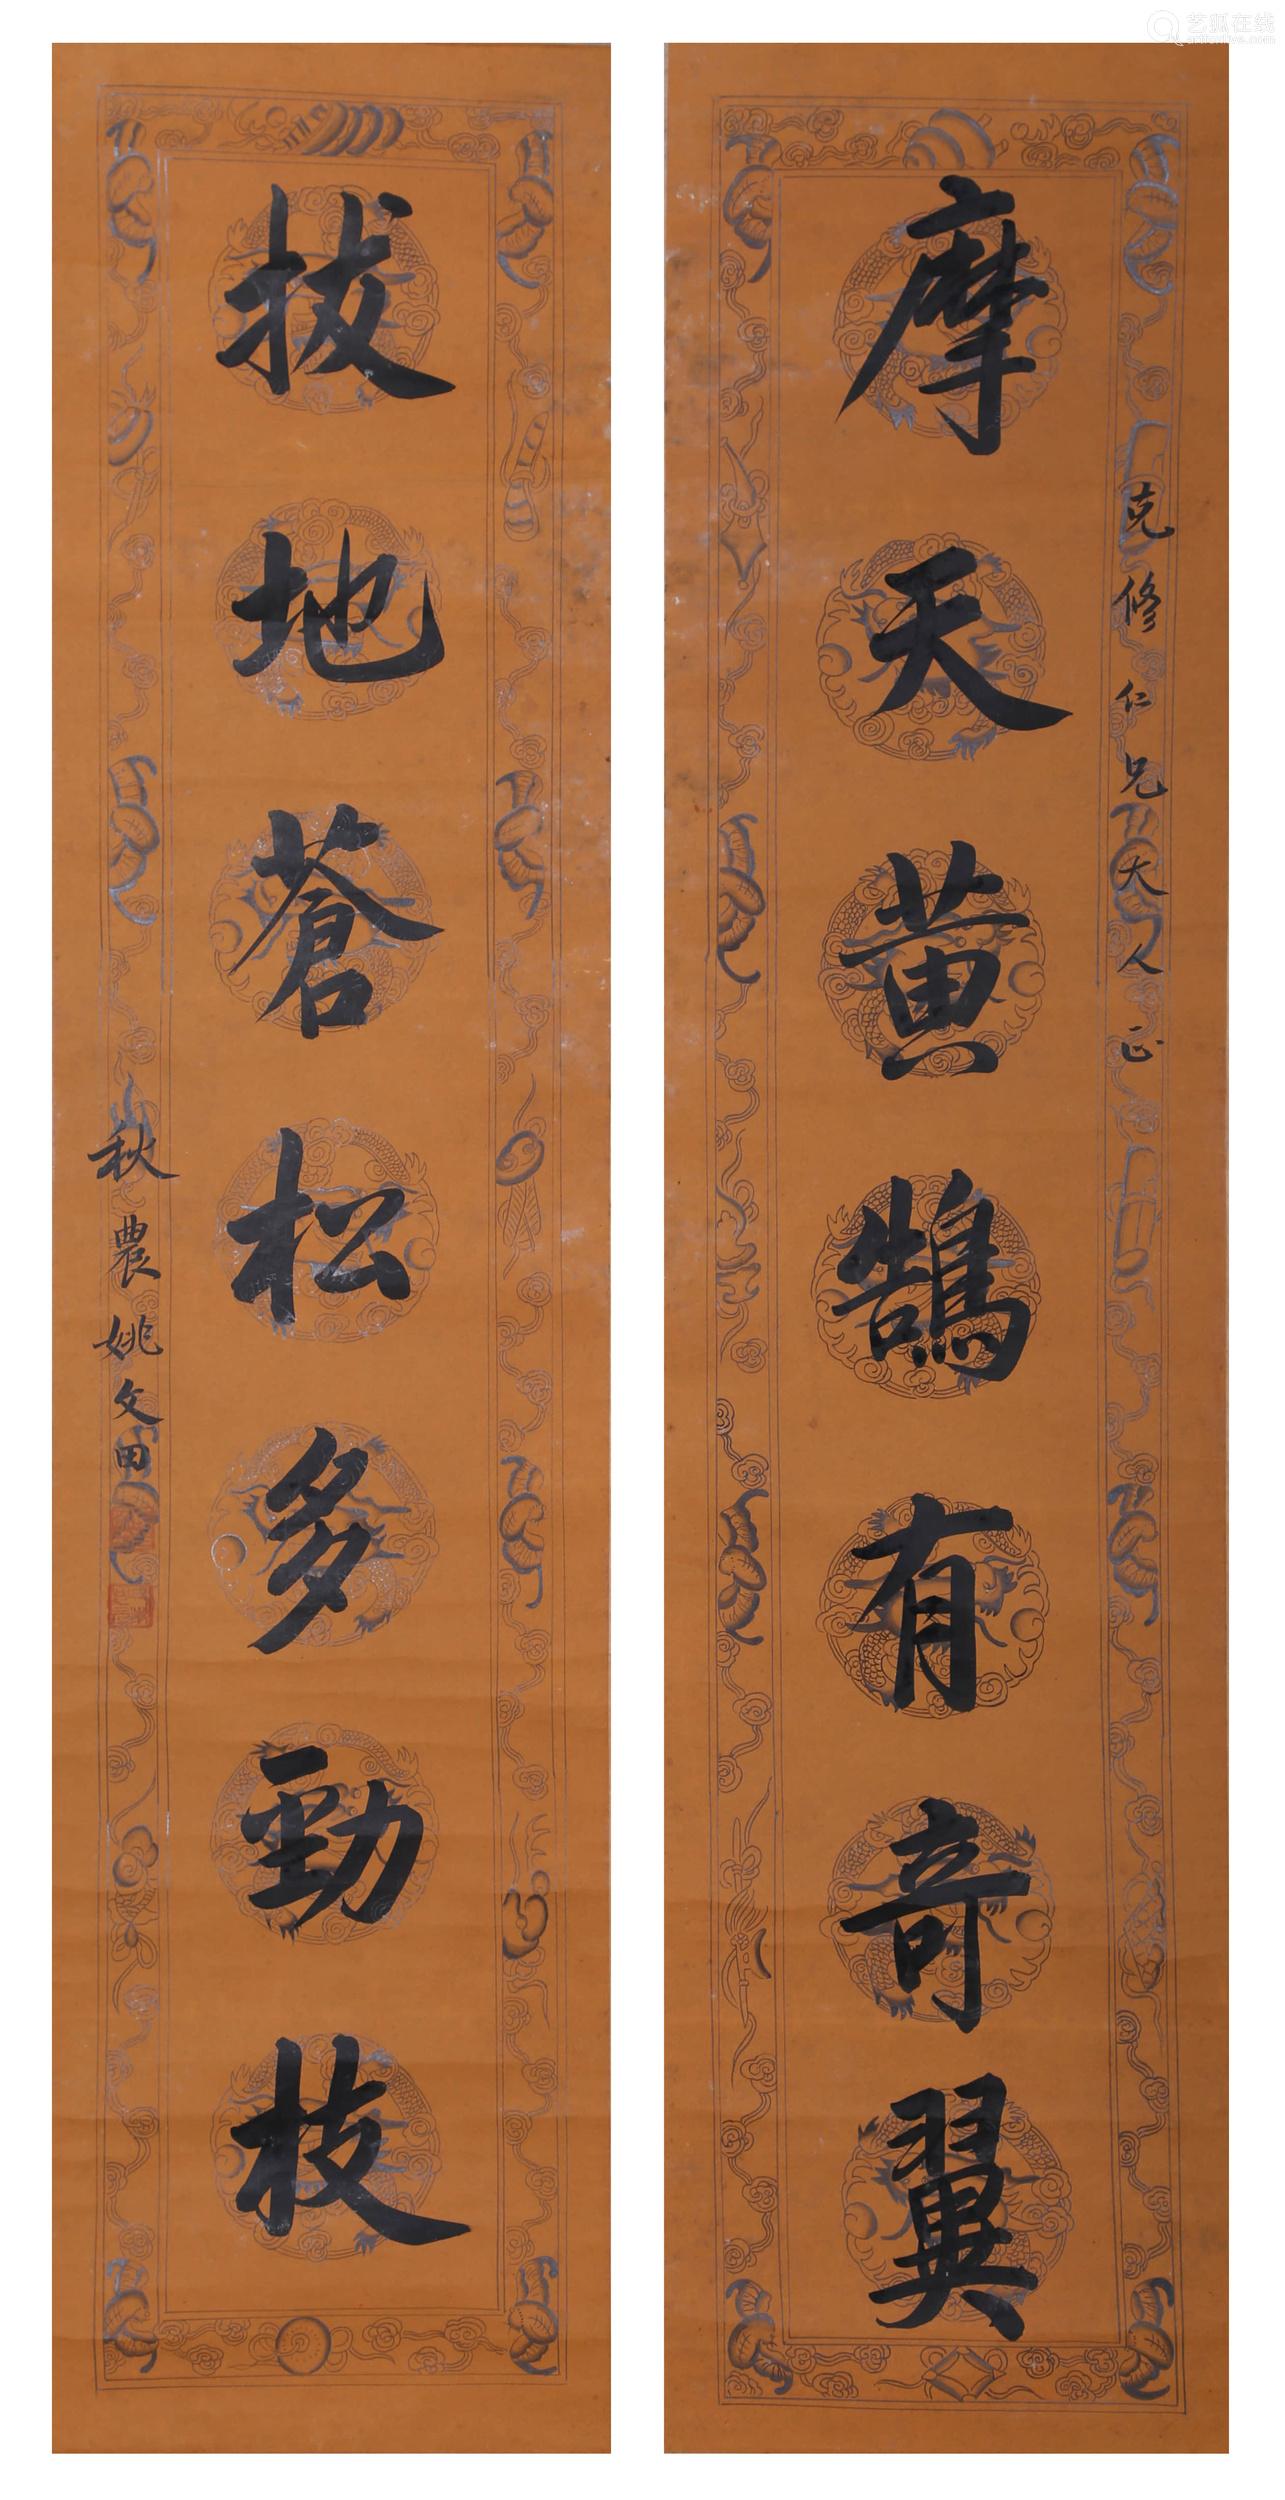 克修仁兄大人正
摩天黄鵠有奇翼
拔地蒼松多勁枝
秋農姚文田
艺狐在线
artfoxlive.com